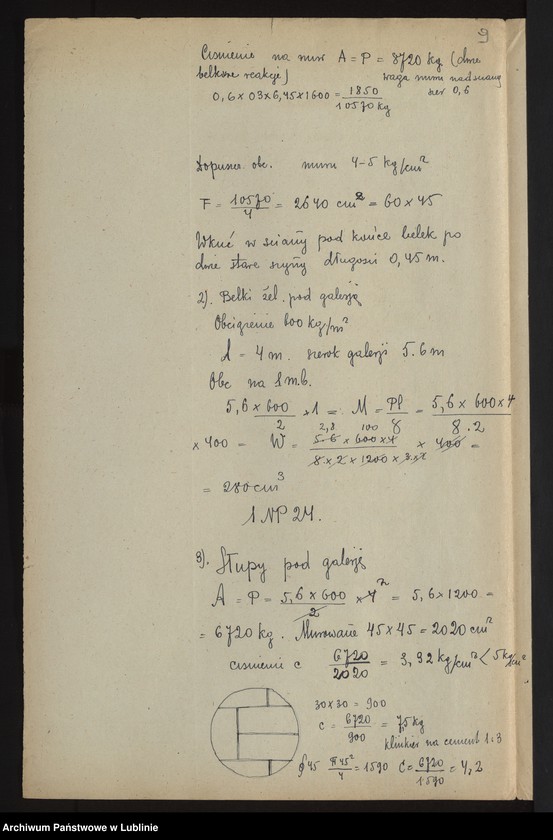 9
Ciśnienie na mur A = P = 8720 kg (dwie
belkowe reakcje) waga muru nad
0,6 x 03 x 6,45 x 1600 = 1850 szer 0,6
10570 kg
Dopuszcz. obc. muru 4-5 kg/cm²
F = 10570/4 = 2640 cm² = 60 x 45
Wkuć w ściany pod końce belek po
dwie stare szyny długości 0,45 m.
2). Belki żel. pod galerję
Obciążenie 600 kg/m²
l = 4 m. szerok galerji 5.6 m
Obc na 1 m.b.
5,6 x 600/2 x 1 = M = Pl/8 = 5,6 x 600 x 4/8.2
x 400 = W = 5.6 x 600 x 4 x 400 =
2,8 100
= 280 cm³
1 NP 24.
3). Słupy pod galerję
A = P = 5,6 x 600/2 x 4 = 5,6 x 1200 =
= 6720 kg. Murowane 45 x 45 = 2020 cm²
ciśnienie c 6720/2020 = 3,32 kg/cm² < 5 kg/cm²
30 x 30 = 900
c = 6720/900 = 7,5 kg
klinkier na cement 1:3
∮45 π45²/4 = 1590 C = 6720/1590 = 4,2
Archiwum Państwowe w Lublinie